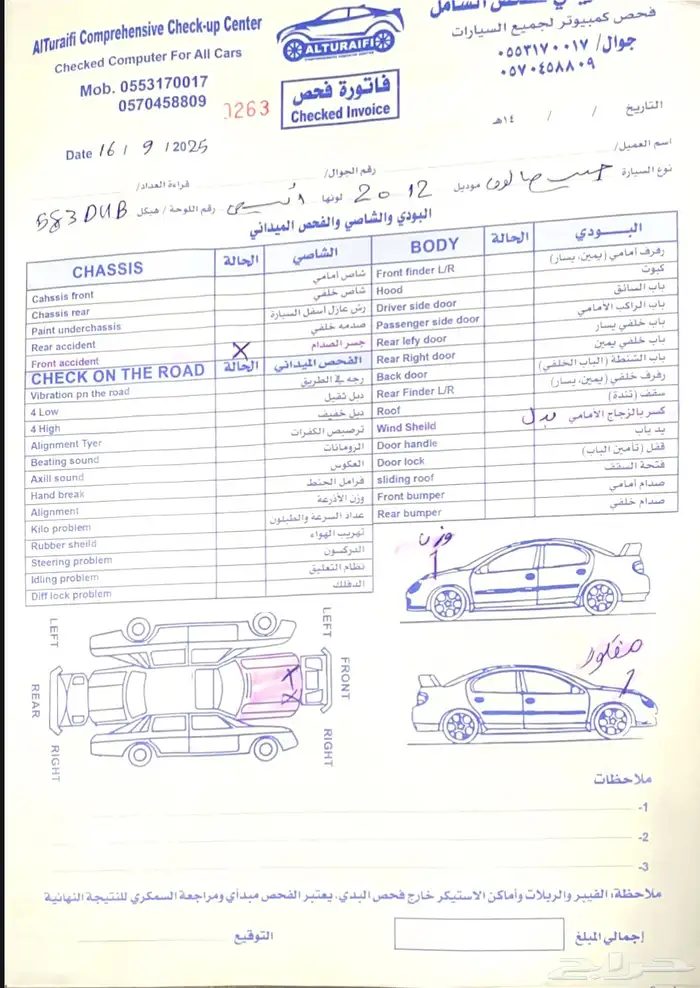 الفحص الشامل
AlTuraifi Comprehensive Check-up Center
فحص كمبيوتر لجميع السيارات
Checked Computer For All Cars
ALTURAIFI
جوال/ ٠٥٥٣١٧٠٠١٧
٠٥٧٠٤٥٨٨٠٩
Mob. 0553170017
0570458809
0263
فاتورة فحص
Checked Invoice
التاريخ / / ١٤هـ
Date 16 / 9 / 2025
اسم العميل/
رقم الجوال/
نوع السيارة جيب صالون موديل 2012 لونها
قراءة العداد/
رقم اللوحة / هيكل 583 DUB
البودي والشاصي والفحص الميداني
CHASSIS الحالة الشاصي
Cahssis front شاص أمامي
Chassis rear شاص خلفي
Paint underchassis رش عازل أسفل السيارة
Rear accident صدمه خلفي
Front accident X جسر الصدام
CHECK ON THE ROAD الحالة الفحص الميداني
Vibration pn the road رجه في الطريق
4 Low دبل ثقيل
4 High دبل خفيف
Alignment Tyer ترصيص الكفرات
Beating sound الرومانات
Axill sound العكوس
Hand break فرامل الجنط
Alignment وزن الأذرعة
Kilo problem عداد السرعة والطبلون
Rubber sheild تهريب الهواء
Steering problem الدركسون
Idling problem نظام التعليق
Diff lock problem الدفلك
BODY الحالة البـــودي
Front finder L/R رفرف أمامي (يمين، يسار)
Hood كبوت
Driver side door باب السائق
Passenger side door باب الراكب الأمامي
Rear lefy door باب خلفي يسار
Rear Right door باب خلفي يمين
Back door باب الشنطة (الباب الخلفي)
Rear Finder L/R رفرف خلفي (يمين، يسار)
Roof سقف (تندة)
Wind Sheild بدل كسر بالزجاج الامامي
Door handle يد باب
Door lock قفل (تأمين الباب)
sliding roof فتحة السقف
Front bumper صدام أمامي
Rear bumper صدام خلفي
وزن
LEFT LEFT
REAR X X FRONT
RIGHT RIGHT
مفكوك
ملاحظات
-1
-2
-3
ملاحظة: الفيبر والربلات وأماكن الاستيكر خارج فحص البدي، يعتبر الفحص مبدأي ومراجعة السمكري للنتيجة النهائية
إجمالي المبلغ
التوقيع
حراج